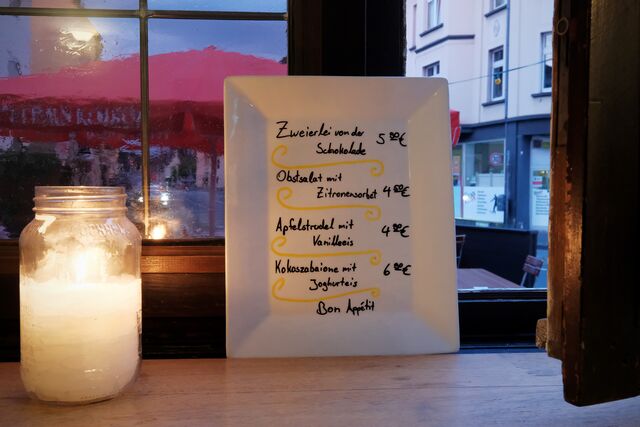 Zweierlei von der
Schokolade 5 00€
Obstsalat mit
Zitronensorbet 4 00€
Apfelstrudel mit
Vanilleeis 4 00€
Kokoszabaione mit
Joghurteis 6 00€
Bon Appétit